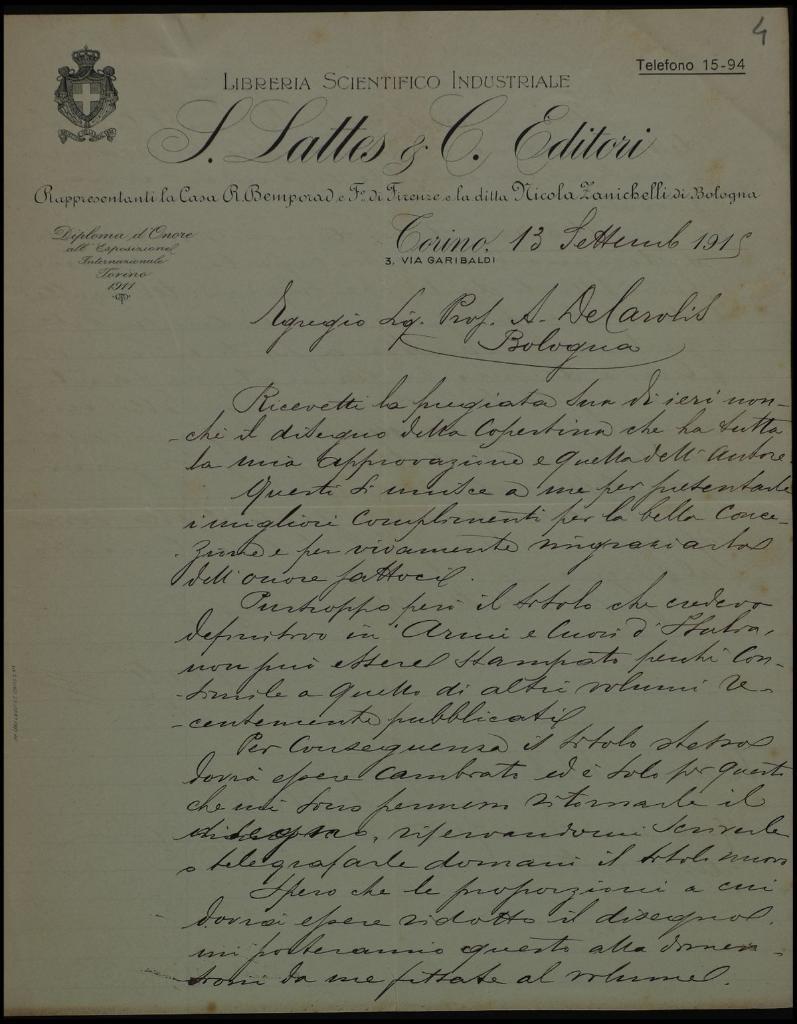 4
Telefono 15-94
LIBRERIA SCIENTIFICO INDUSTRIALE
S. Lattes & C. Editori
Rappresentanti la Casa R. Bemporad e Fº di Firenze e la ditta Nicola Zanichelli di Bologna
Diploma d'Onore
all'Esposizione
Internazionale
Torino
1911
Torino, 13 Settemb 1915
3, VIA GARIBALDI
Egregio Sig. Prof. A. De Carolis
Bologna
Ricevetti la pregiata Sua di ieri non-
-chè il disegno della Copertina che ha tutta
la mia approvazione e quella dell'Autore.
Questi si unisce a me per presentarle
i migliori complimenti per la bella Conce-
zione e per vivamente ringraziarla
dell'onore fattoci.
Purtroppo però il titolo che credevo
definitivo in "Armi e Cuori d'Italia,
non può essere stampato perchè Con-
-simile a quello di altri volumi re-
-centemente pubblicati.
Per Conseguenza il titolo stesso
dovrà essere Cambiato ed è solo per questo
che mi sono permesso ritornarle il
disegno, riservandomi scriverle
o telegrafarle domani il titolo nuovo
Spero che le proporzioni a cui
dovrà essere ridotto il disegno,
mi porteranno questo alla dimen-
-sioni da me fissate al volume.